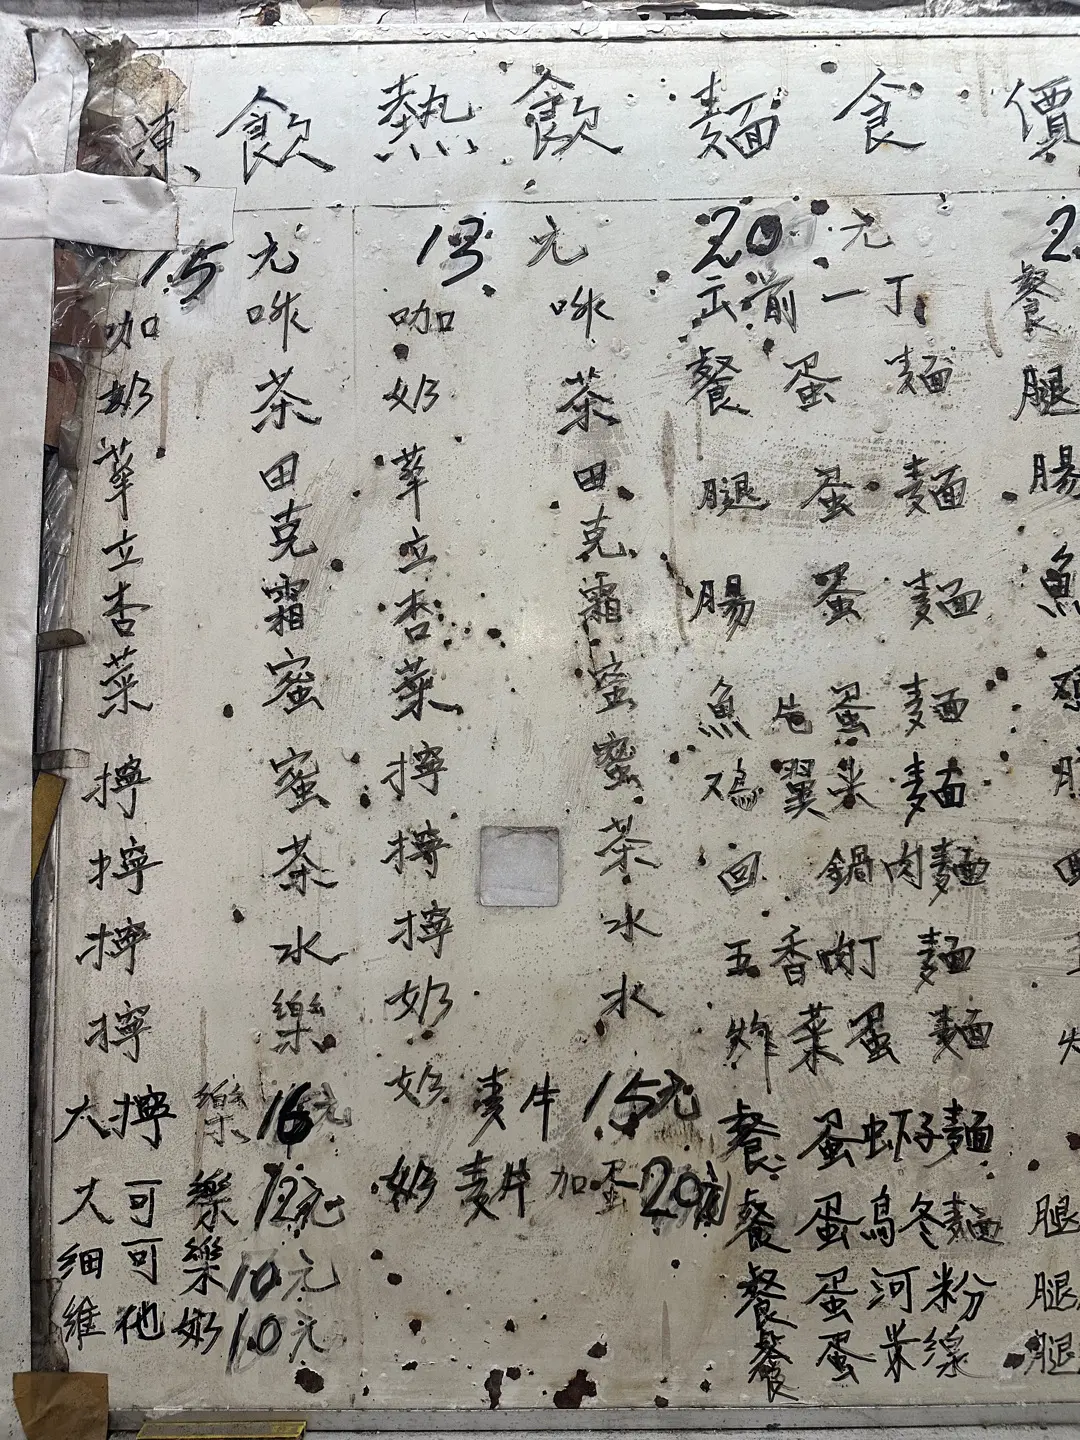 凍飲 熱飲 麵食 價
15元 13元 20元 2
咖啡 咖啡 云前一丁 餐
奶茶 奶茶 餐蛋麵 腿
華田 華田 腿蛋麵 腸
立克 立克 腸蛋麵 魚
杏霜 杏霜 魚片蛋麵
菜蜜 菜蜜 鸡翼米麵
擰蜜 擰蜜 回鍋肉麵
擰茶 擰茶 五香肉丁麵
擰水 擰水 炸菜蛋麵
擰樂 奶水
大擰樂16元 奶麦牛15元 餐蛋虾子麵
大可樂12元 奶麦片加蛋20元 餐蛋烏冬麵 腿
细可樂10元 餐蛋河粉 腿
維他奶10元 餐蛋米線 腿